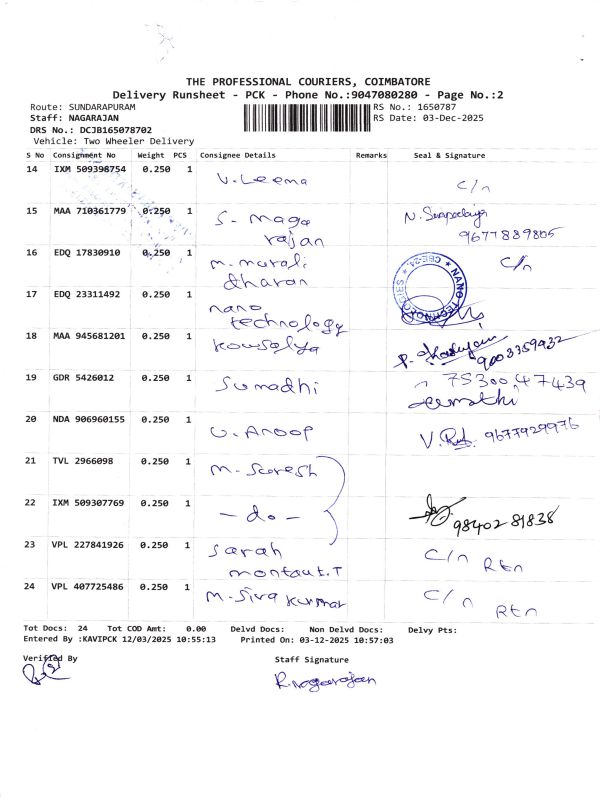 THE PROFESSIONAL COURIERS, COIMBATORE
Delivery Runsheet - PCK - Phone No.:9047080280 - Page No.:2
Route: SUNDARAPURAM RS No.: 1650787
Staff: NAGARAJAN RS Date: 03-Dec-2025
DRS No.: DCJB165078702
Vehicle: Two Wheeler Delivery
S No Consignment No Weight PCS Consignee Details Remarks Seal & Signature
14 IXM 509398754 0.250 1 V. Leema C/n
15 MAA 710361779 0.250 1 S. Maga
rajan 9677889805
16 EDQ 17830910 0.250 1 m. murali C/n
dharan
17 EDQ 23311492 0.250 1 nano
technology
NANO TECHNOLOGIES * CBE-24. *
18 MAA 945681201 0.250 1 Kowsalya 9003359932
19 GDR 5426012 0.250 1 Sumadhi 75300 47439
20 NDA 906960155 0.250 1 U. Anoop V. 9677929976
21 TVL 2966098 0.250 1 m. Suresh
22 IXM 509307769 0.250 1 - do - 98402 81838
23 VPL 227841926 0.250 1 Sarah C/n Rtn
montaut.T
24 VPL 407725486 0.250 1 m. Siva kumar C/n Rtn
Tot Docs: 24 Tot COD Amt: 0.00 Delvd Docs: Non Delvd Docs: Delvy Pts:
Entered By :KAVIPCK 12/03/2025 10:55:13 Printed On: 03-12-2025 10:57:03
Verified By Staff Signature
R. nagarajan